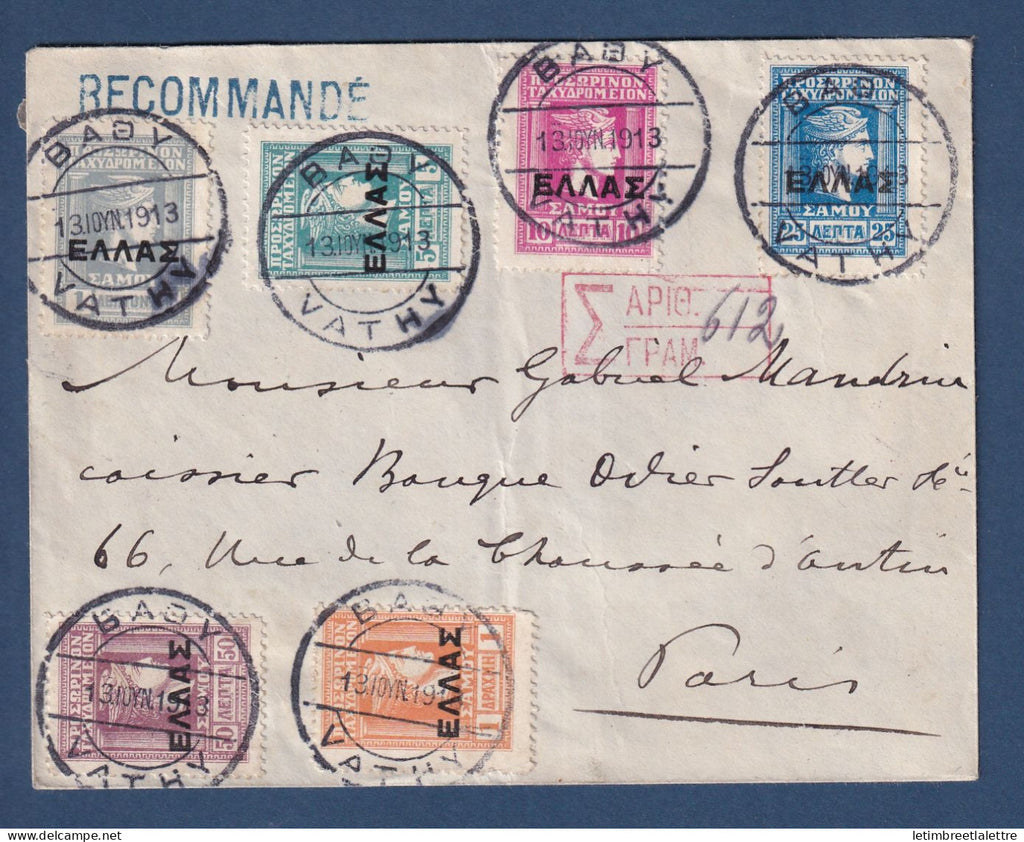 RECOMMANDÉ
ΠΡΟΣΩΡΙΝΟΝ
ΤΑΧΥΔΡΟΜΕΙΟΝ
ΕΛΛΑΣ
ΣΑΜΟΥ
1 ΛΕΠΤΟΝ
ΒΑΘΥ
13.ΙΟΥΝ.1913
VATHY
ΠΡΟΣΩΡΙΝΟΝ
ΤΑΧΥΔΡΟΜΕΙΟΝ
ΕΛΛΑΣ
ΣΑΜΟΥ
5 ΛΕΠΤΑ 5
ΒΑΘΥ
13.ΙΟΥΝ.1913
VATHY
ΠΡΟΣΩΡΙΝΟΝ
ΤΑΧΥΔΡΟΜΕΙΟΝ
ΕΛΛΑΣ
10 ΛΕΠΤΑ 10
ΒΑΘΥ
13.ΙΟΥΝ.1913
VATHY
ΠΡΟΣΩΡΙΝΟΝ
ΤΑΧΥΔΡΟΜΕΙΟΝ
ΕΛΛΑΣ
ΣΑΜΟΥ
25 ΛΕΠΤΑ 25
ΒΑΘΥ
VATHY
Σ ΑΡΙΘ. 612
ΓΡΑΜ.
Monsieur Gabriel Mandrin
caissier Banque Odier
66, Rue de la Chaussée d'Antin
Paris
ΠΡΟΣΩΡΙΝΟΝ
ΤΑΧΥΔΡΟΜΕΙΟΝ
ΕΛΛΑΣ
ΣΑΜΟΥ
50 ΛΕΠΤΑ 50
ΒΑΘΥ
13.ΙΟΥΝ.1913
VATHY
ΠΡΟΣΩΡΙΝΟΝ
ΤΑΧΥΔΡΟΜΕΙΟΝ
ΕΛΛΑΣ
ΣΑΜΟΥ
1 ΔΡΑΧΜΗ 1
ΒΑΘΥ
13.ΙΟΥΝ.191
VATHY
letimbreetlalettre